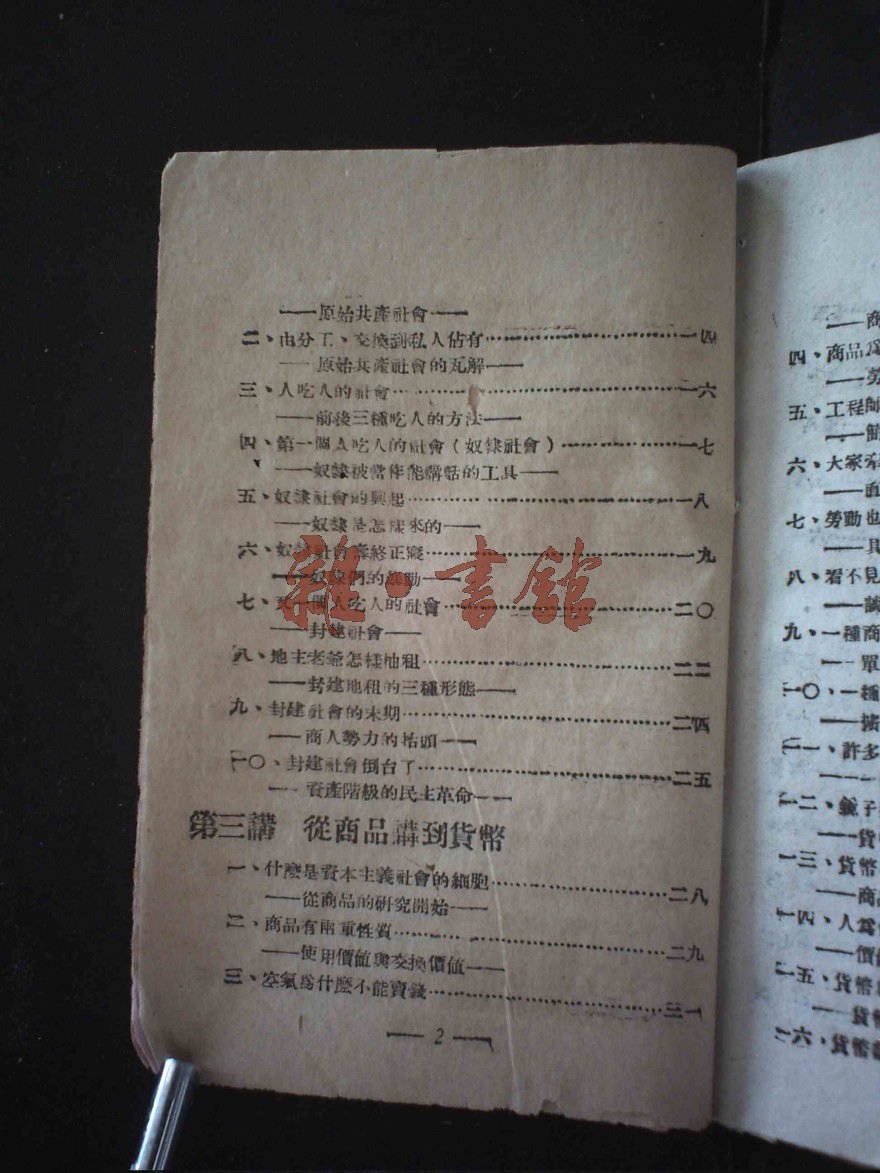 ——原始共產社會——
二、由分工、交換到私人佔有……一四
——原始共產社會的瓦解——
三、人吃人的社會……一六
——前後三種吃人的方法——
四、第一個人吃人的社會（奴隸社會）……一七
——奴隸被當作能講話的工具——
五、奴隸社會的興起……一八
——奴隸是怎樣來的——
六、奴隸社會壽終正寢……一九
——奴隸們的
七、又一個人吃人的社會……二〇
——封建社會——
八、地主老爺怎樣抽租……二二
——封建地租的三種形態——
九、封建社會的末期……二四
——商人勢力的抬頭——
一〇、封建社會倒台了……二五
——資產階級的民主革命——
第三講 從商品講到貨幣
一、什麼是資本主義社會的細胞……二八
——從商品的研究開始——
二、商品有兩重性質……二九
——使用價值與交換價値——
三、空氣爲什麼不能賣錢……三一
— 2 —
雜·書館
——商
四、商品爲
——勞
五、工程師
——簡
六、大家
七、勞動也
——具
八、看不見
——談
九、一種商
——單
一〇、一種
——擴
一一、許多
一二、
——貨
一三、貨幣
——商
一四、人爲
——價
一五、貨幣
——貨
一六、貨幣